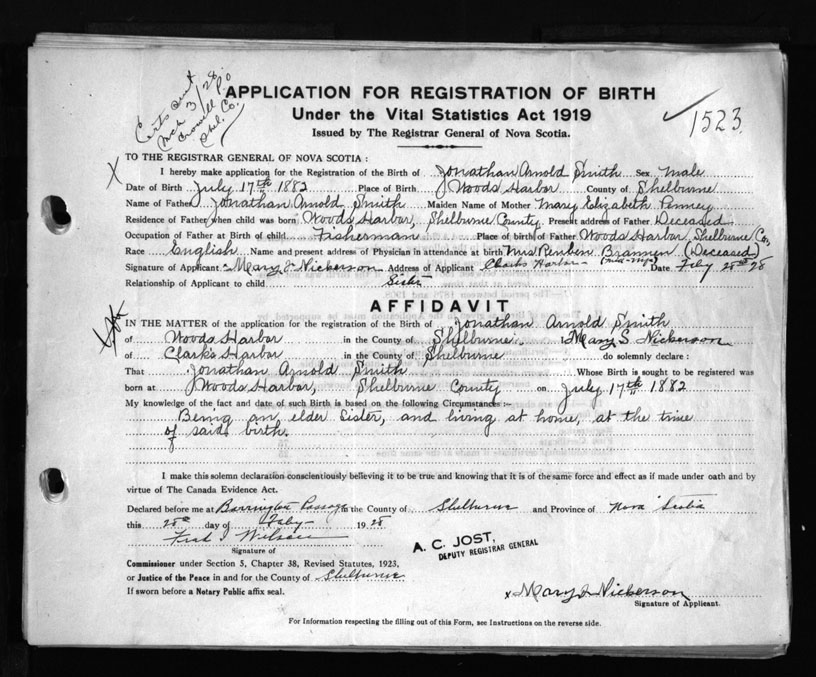 Certs sent
Mch 3/28
Crowell P.O
Shel. Co.
APPLICATION FOR REGISTRATION OF BIRTH
Under the Vital Statistics Act 1919
Issued by The Registrar General of Nova Scotia.
1523
X TO THE REGISTRAR GENERAL OF NOVA SCOTIA :
I hereby make application for the Registration of the Birth of Jonathan Arnold Smith Sex Male
Date of Birth July 17th 1882 Place of Birth Woods Harbor County of Shelburne
Name of Father Jonathan Arnold Smith Maiden Name of Mother Mary Elizabeth Penney
Residence of Father when child was born Woods Harbor, Shelburne County Present address of Father Deceased
Occupation of Father at Birth of child Fisherman Place of birth of Father Woods Harbor, Shelburne Co.,
Race English Name and present address of Physician in attendance at birth Mrs Reuben Brannen (Deceased)
(mid-wife)
Signature of Applicant Mary S Nickerson Address of Applicant Clarks Harbor Date Feby 28th 28
Relationship of Applicant to child Sister
AFFIDAVIT
IN THE MATTER of the application for the registration of the Birth of Jonathan Arnold Smith
of Woods Harbor in the County of Shelburne. I Mary S. Nickerson
of Clarks Harbor in the County of Shelburne do solemnly declare :
That Jonathan Arnold Smith Whose Birth is sought to be registered was
born at Woods Harbor, Shelburne County on July 17th 1882
My knowledge of the fact and date of such Birth is based on the following Circumstances :-
Being an elder Sister, and living at home, at the time
of said birth.
I make this solemn declaration conscientiously believing it to be true and knowing that it is of the same force and effect as if made under oath and by
virtue of The Canada Evidence Act.
Declared before me at Barrington Passage in the County of Shelburne and Province of Nova Scotia
this 28th day of Feby 1928
Wilson
Signature of
Commissioner under Section 5, Chapter 38, Revised Statutes, 1923,
or Justice of the Peace in and for the County of Shelburne
If sworn before a Notary Public affix seal.
A. C. JOST,
DEPUTY REGISTRAR GENERAL
x Mary S Nickerson
Signature of Applicant.
For Information respecting the filling out of this Form, see Instructions on the reverse side.